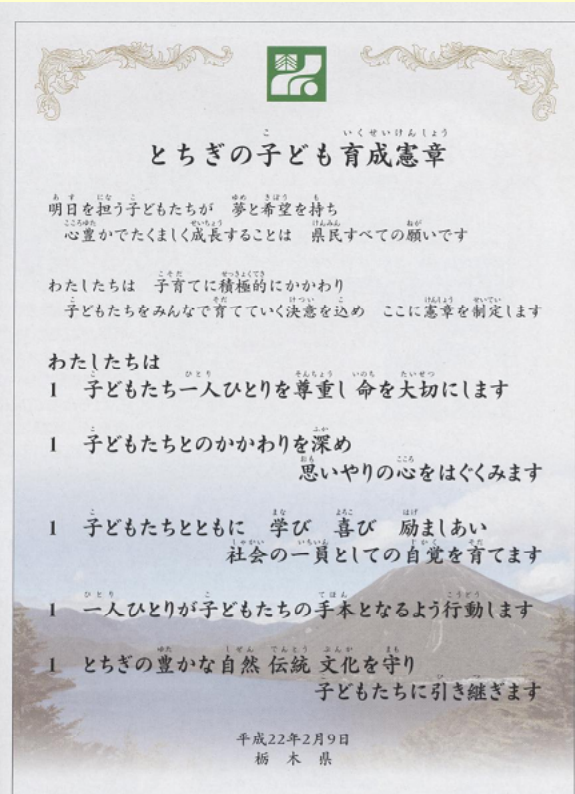 とちぎの子ども育成憲章
明日を担う子どもたちが　夢と希望を持ち
心豊かでたくましく成長することは　県民すべての願いです
わたしたちは　子育てに積極的にかかわり
子どもたちをみんなで育てていく決意を込め　ここに憲章を制定します
わたしたちは
1　子どもたち一人ひとりを尊重し 命を大切にします
1　子どもたちとのかかわりを深め
思いやりの心をはぐくみます
1　子どもたちとともに　学び　喜び　励ましあい
社会の一員としての自覚を育てます
1　一人ひとりが子どもたちの手本となるよう行動します
1　とちぎの豊かな自然 伝統 文化を守り
子どもたちに引き継ぎます
平成22年2月9日
栃 木 県